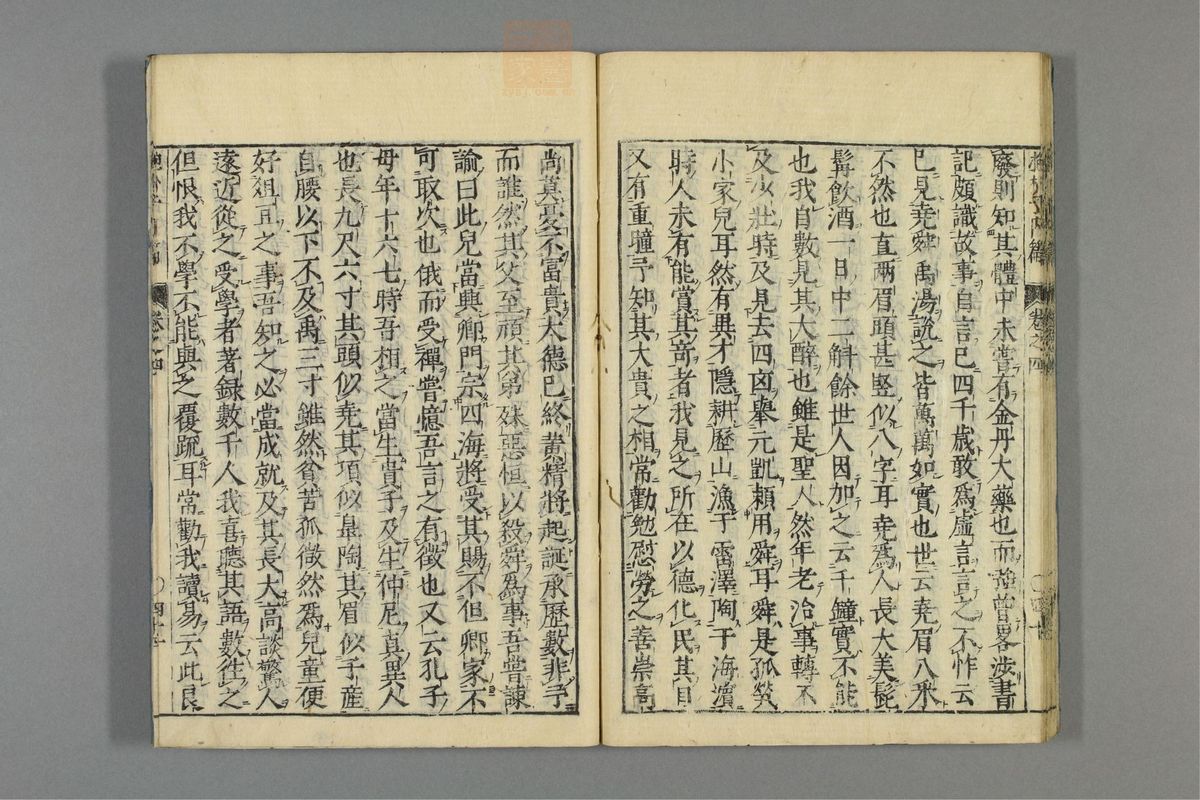 廢則知其體中未嘗有金丹大藥也而
曾畧涉書
記頗識故事自言已四千歲敢爲虛言言之不怍云
已見堯舜禹湯說之皆萬萬如實也世云堯眉八采
不然也直兩眉頭甚竪似八字耳堯爲人長大美髭
髯飲酒一日中二斛餘世人因加之云千鐘實不能
也我自數見其大醉也雖是聖人然年老治事轉不
及少壯時及見去四凶舉元凱賴用舜耳舜是孤煢
小家兒耳然有異才隱耕歷山漁于雷澤陶于海濱
時人未有能賞其奇者我見之所在以德化民其目
又有重瞳子知其大貴之相常勸勉慰勞之善崇高
尚莫憂不富貴火德已終黃精將起誕承歷數非子
而誰然其父至頑其弟殊惡恒以殺舜爲事吾嘗諫
諭曰此兒當興卿門宗四海將受其賜不但卿家不
可取次也俄而受禪嘗憶吾言之有徵也又云孔子
母年十六七時吾相之當生貴子及生仲尼真異人
也長九尺六寸其頭似堯其項似皐陶其肩似子産
自腰以下不及禹三寸雖然貧苦孤微然爲兒童便
好俎豆之事吾知之必當成就及其長大高談驚人
遠近從之受學者著録數千人我喜聽其語數徃之
但恨我不學不能與之覆疏耳常勸我讀易云此良
卷之四
卷之四